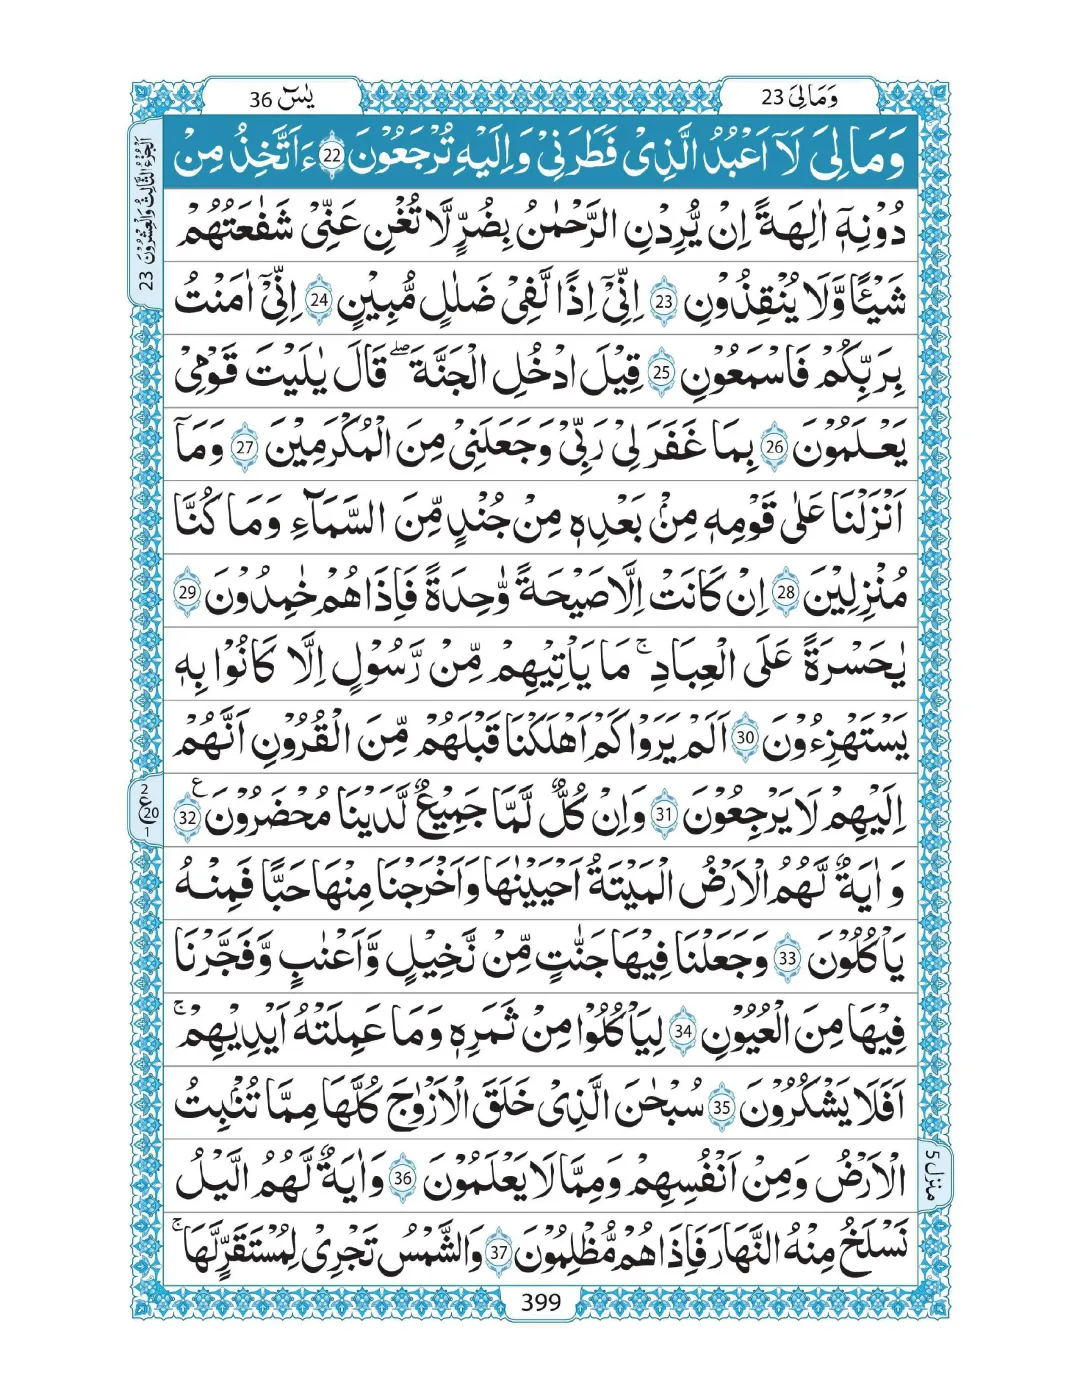 وَمَالِیَ 23
یٰسٓ 36
وَمَا لِیَ لَاۤ اَعْبُدُ الَّذِیْ فَطَرَنِیْ وَاِلَیْهِ تُرْجَعُوْنَ 22 ءَاَتَّخِذُ مِنْ
دُوْنِهٖۤ اٰلِهَةً اِنْ یُّرِدْنِ الرَّحْمٰنُ بِضُرٍّ لَّا تُغْنِ عَنِّیْ شَفٰعَتُهُمْ
شَیْـًٔا وَّلَا یُنْقِذُوْنِ 23 اِنِّیْۤ اِذًا لَّفِیْ ضَلٰلٍ مُّبِیْنٍ 24 اِنِّیْۤ اٰمَنْتُ
بِرَبِّكُمْ فَاسْمَعُوْنِ 25 قِیْلَ ادْخُلِ الْجَنَّةَ ۖ قَالَ یٰلَیْتَ قَوْمِیْ
یَعْلَمُوْنَ 26 بِمَا غَفَرَ لِیْ رَبِّیْ وَجَعَلَنِیْ مِنَ الْمُكْرَمِیْنَ 27 وَمَاۤ
اَنْزَلْنَا عَلٰی قَوْمِهٖ مِنْۢ بَعْدِهٖ مِنْ جُنْدٍ مِّنَ السَّمَآءِ وَمَا كُنَّا
مُنْزِلِیْنَ 28 اِنْ كَانَتْ اِلَّا صَیْحَةً وَّاحِدَةً فَاِذَا هُمْ خٰمِدُوْنَ 29
یٰحَسْرَةً عَلَی الْعِبَادِ ۚ مَا یَاْتِیْهِمْ مِّنْ رَّسُوْلٍ اِلَّا كَانُوْا بِهٖ
یَسْتَهْزِءُوْنَ 30 اَلَمْ یَرَوْا كَمْ اَهْلَكْنَا قَبْلَهُمْ مِّنَ الْقُرُوْنِ اَنَّهُمْ
اِلَیْهِمْ لَا یَرْجِعُوْنَ 31 وَاِنْ كُلٌّ لَّمَّا جَمِیْعٌ لَّدَیْنَا مُحْضَرُوْنَ 32 ع
وَاٰیَةٌ لَّهُمُ الْاَرْضُ الْمَیْتَةُ اَحْیَیْنٰهَا وَاَخْرَجْنَا مِنْهَا حَبًّا فَمِنْهُ
یَاْكُلُوْنَ 33 وَجَعَلْنَا فِیْهَا جَنّٰتٍ مِّنْ نَّخِیْلٍ وَّاَعْنٰبٍ وَّفَجَّرْنَا
فِیْهَا مِنَ الْعُیُوْنِ 34 لِیَاْكُلُوْا مِنْ ثَمَرِهٖ وَمَا عَمِلَتْهُ اَیْدِیْهِمْ ۚ
اَفَلَا یَشْكُرُوْنَ 35 سُبْحٰنَ الَّذِیْ خَلَقَ الْاَزْوٰجَ كُلَّهَا مِمَّا تُنْۢبِتُ
الْاَرْضُ وَمِنْ اَنْفُسِهِمْ وَمِمَّا لَا یَعْلَمُوْنَ 36 وَاٰیَةٌ لَّهُمُ الَّیْلُ
نَسْلَخُ مِنْهُ النَّهَارَ فَاِذَا هُمْ مُّظْلِمُوْنَ 37 وَالشَّمْسُ تَجْرِیْ لِمُسْتَقَرٍّ لَّهَا ۚ
الْجُزْءُ الثَّالِثُ وَالْعِشْرُوْنَ 23
2
ع 20
1
منزل 5
399